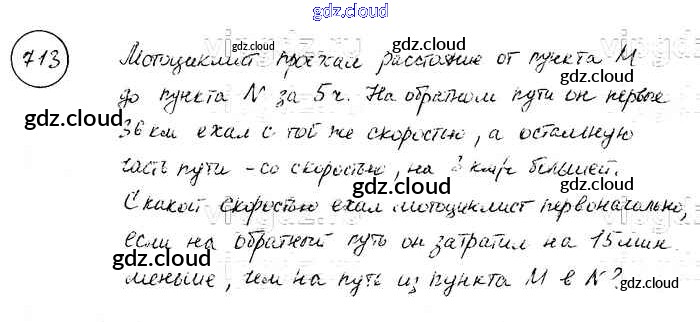 gdz.cloud
713
Мотоциклист проехал расстояние от пункта M
до пункта N за 5 ч. На обратном пути он первые
36 км ехал с той же скоростью, а остальную
часть пути - со скоростью, на 3 км/ч большей.
С какой скоростью ехал мотоциклист первоначально,
если на обратный путь он затратил на 15 мин
меньше, чем на путь из пункта M в N?
gdz.cloud
gdz.cloud
gdz.cloud
gdz.cloud
gdz.cloud
gdz.cloud
gdz.cloud
gdz.cloud
gdz.cloud
gdz.cloud
gdz.cloud